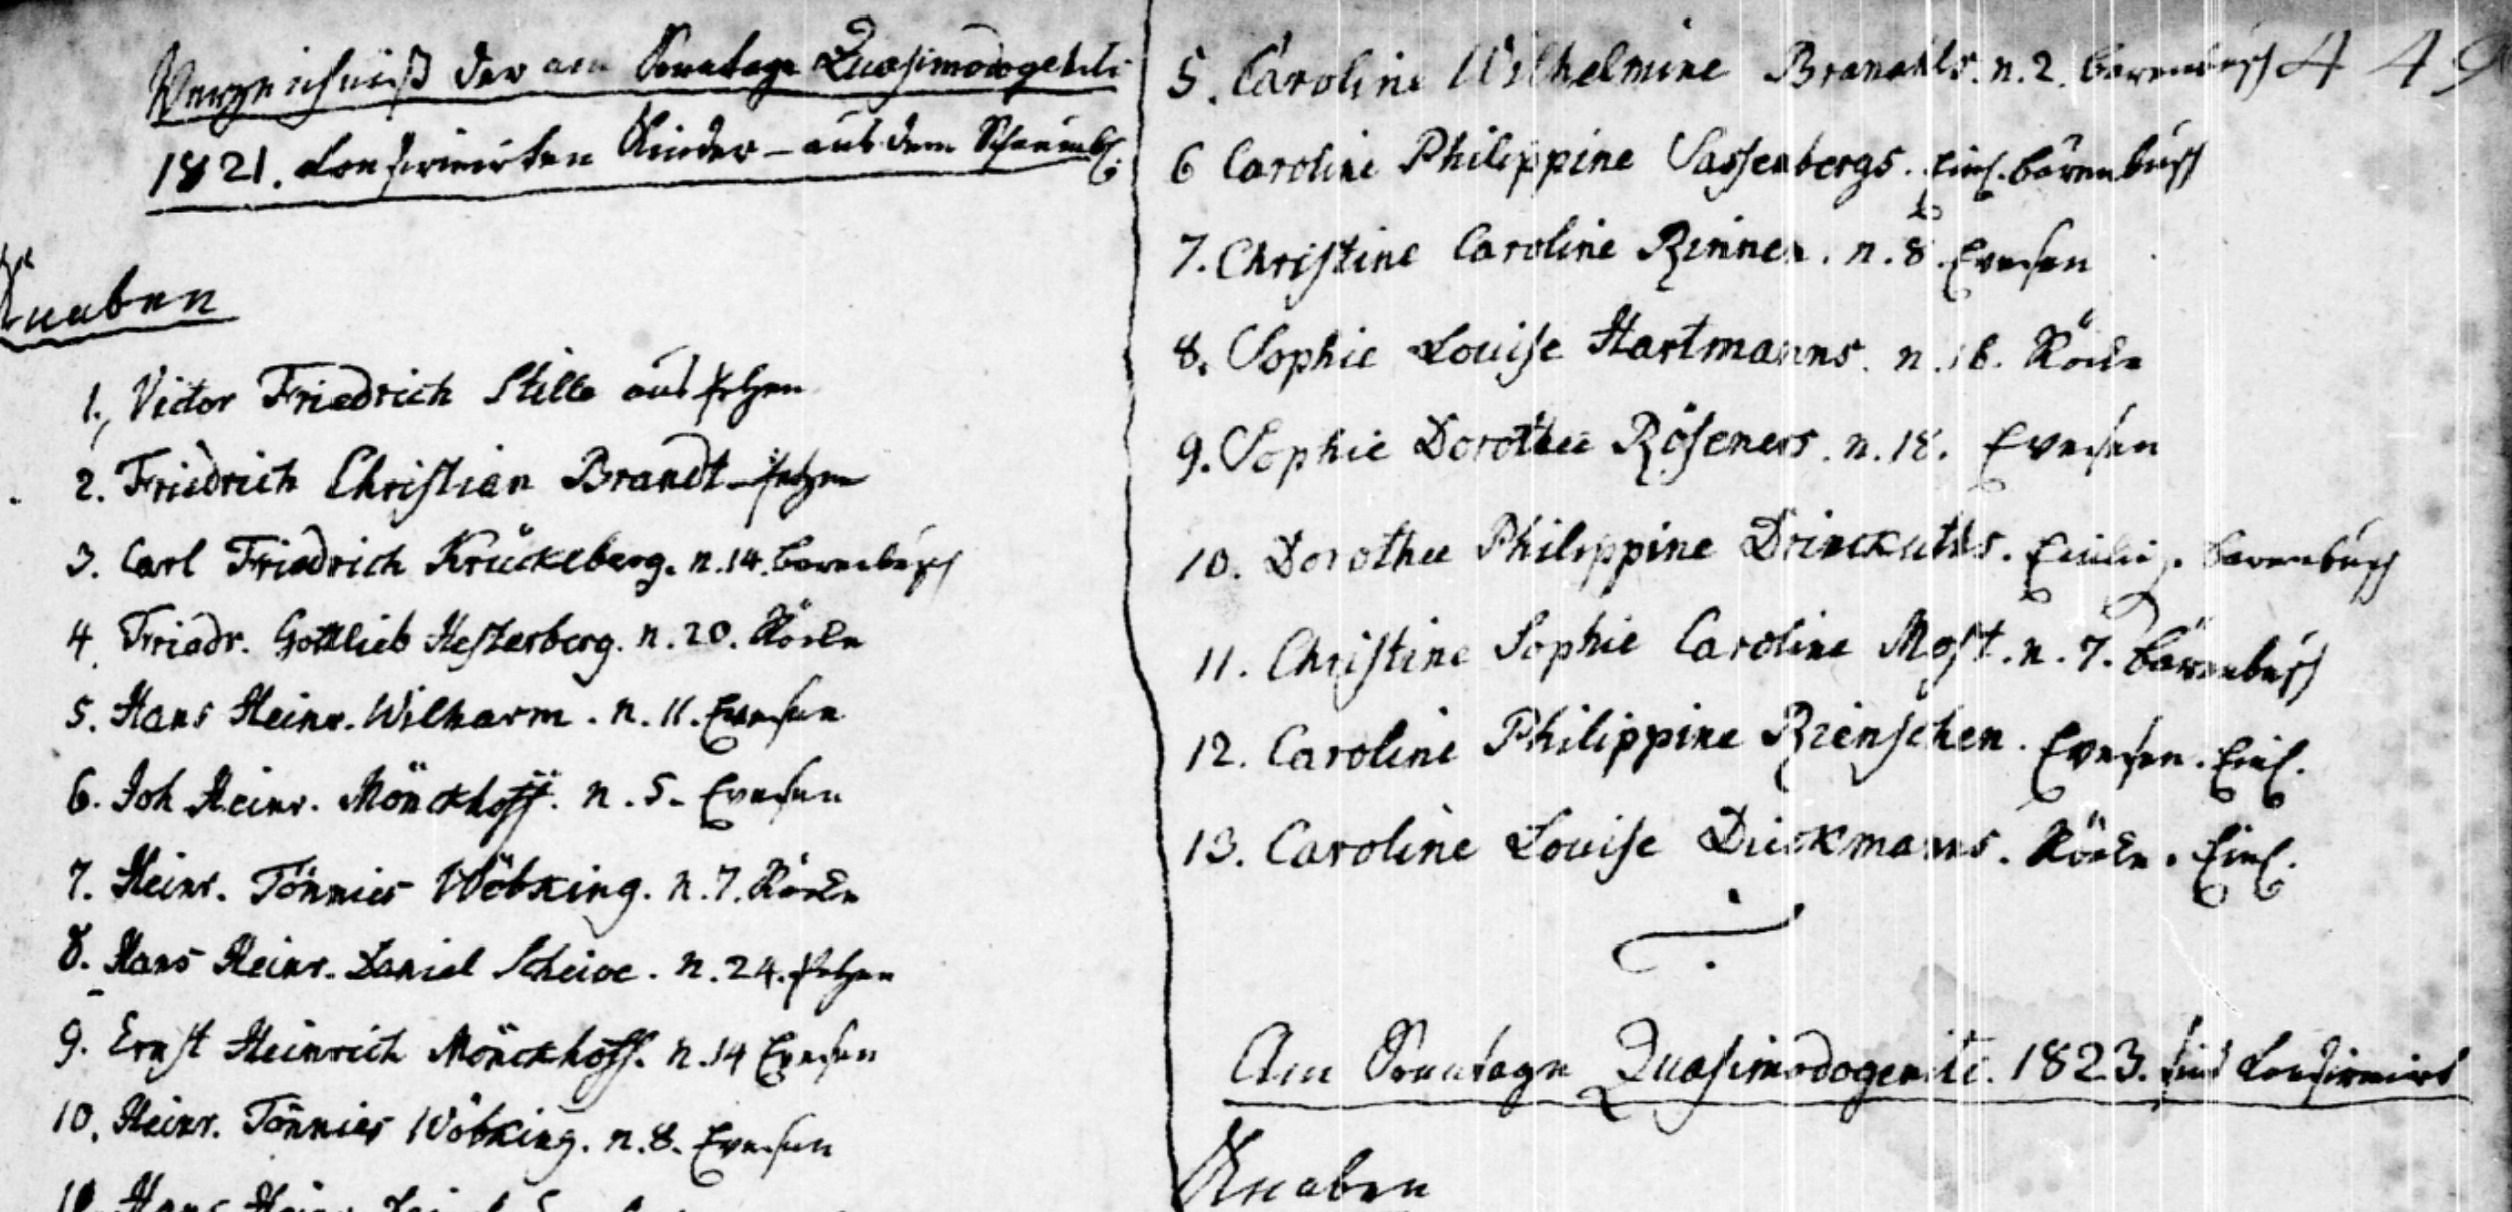 Verzeichniß der am Sonntage Quasimodogeniti
1821. Confirmirten Kinder – aus dem Schaumb.
Knaben
1., Victor Friedrich Stille aus Petzen
2. Friedrich Christian Brandt – Petzen
3. Carl Friedrich Krückeberg. n. 14. Berenbusch
4. Friedr. Gottlieb Hesterberg. n. 20. Röcke
5. Hans Heinr. Wilharm. n. 11. Evesen
6. Joh Heinr. Mönckhoff. n. 5. Evesen
7. Heinr. Tönnies Wöbking. n. 7. Röcke
8. Hans Heinr. Daniel Scheive. n. 24. Petzen
9. Ernst Heinrich Mönckhoff. n. 14 Evesen
10. Heinr. Tönnies Wöbking. n. 8. Evesen
Hans Heinr.
449
5. Caroline Wilhelmine n. 2. Berenbusch
6 Caroline Philippine Sassenbergs. Einl. Bärenbusch
7. Christine Caroline Rinnen. n. 8. Evesen
8. Sophie Louise Hartmanns. n. 16. Röcke
9. Sophie Dorothee Röseners. n. 18. Evesen
10. Dorothee Philippine Drinckuths. Berenbusch
11. Christine Sophie Caroline Most. n. 7. Bärenbusch
12. Caroline Philippine Rienschen. Evesen. Einl.
13. Caroline Louise Dieckmanns. Röcke. Einl.
Am Sonntage Quasimodogeniti. 1823. sind Confirmirt
Knaben